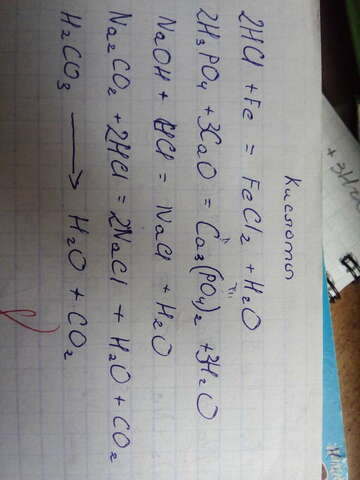 Кислоты
2HCl + Fe = FeCl₂ + H₂O
2H₃PO₄ + 3CaO = Ca₃(PO₄)₂ + 3H₂O
NaOH + HCl = NaCl + H₂O
Na₂CO₃ + 2HCl = 2NaCl + H₂O + CO₂
H₂CO₃ ⟶ H₂O + CO₂